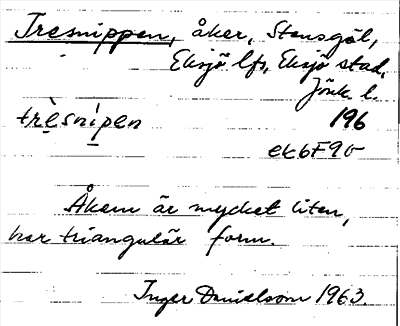 Tresnippen, åker, Stensgöl,
Eksjö lfs, Eksjö stad,
Jönk. l.
trèsnipen 196
ek6F9b
Åkern är mycket liten,
har triangulär form.
Inger Danielsson 1963.